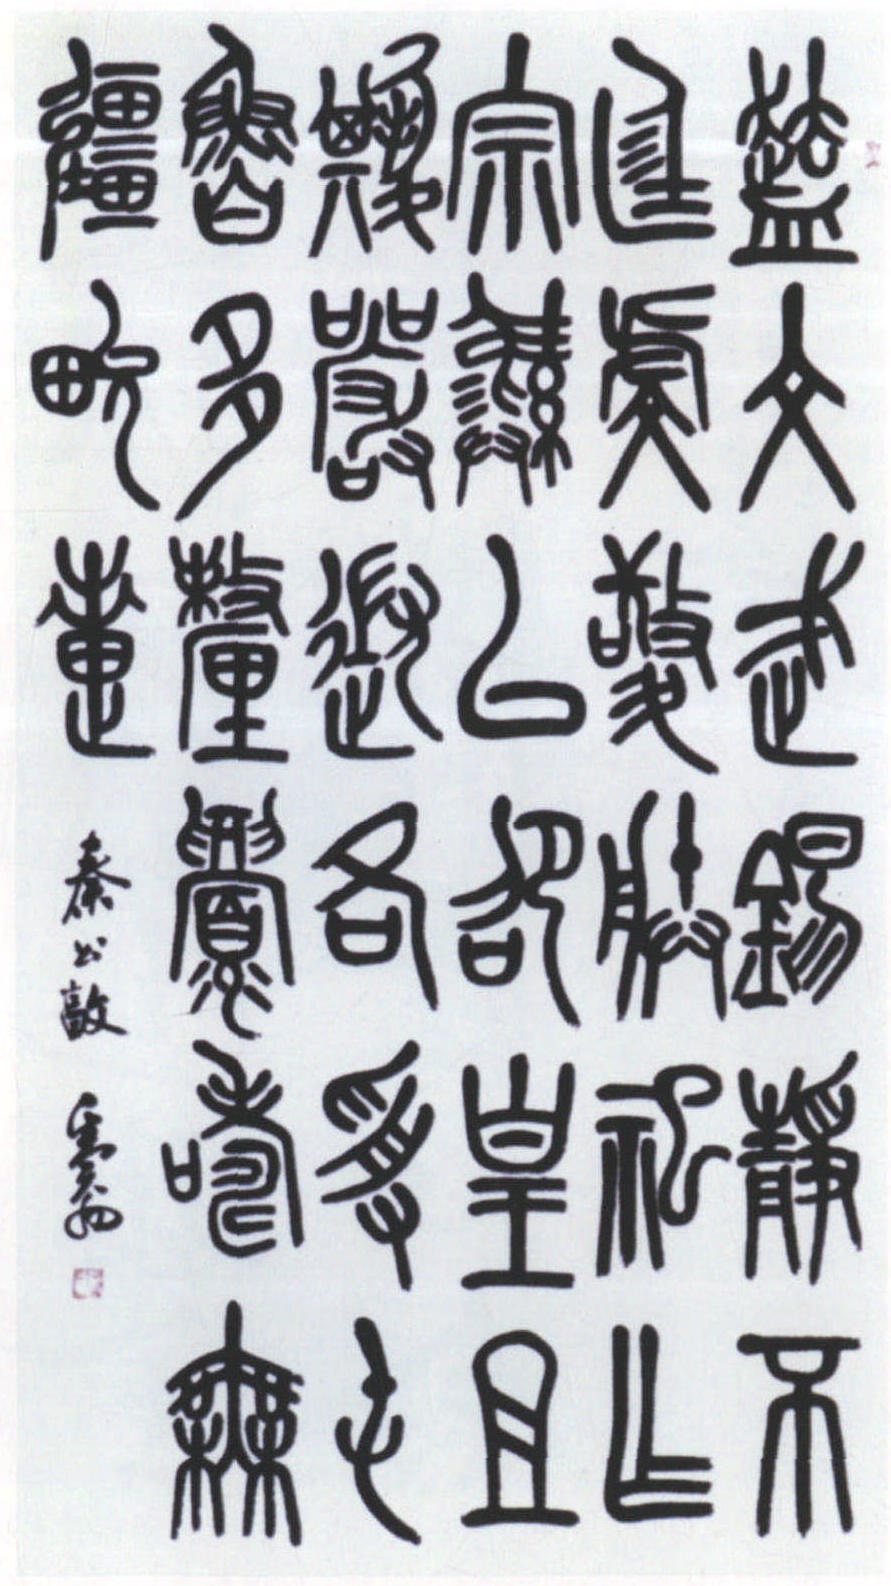 藎文武鎮靜不
廷虔敬朕祀乍
宗彝以邵皇且
其嚴遄各受屯
魯多釐眉壽無
疆畯疐
秦公敦